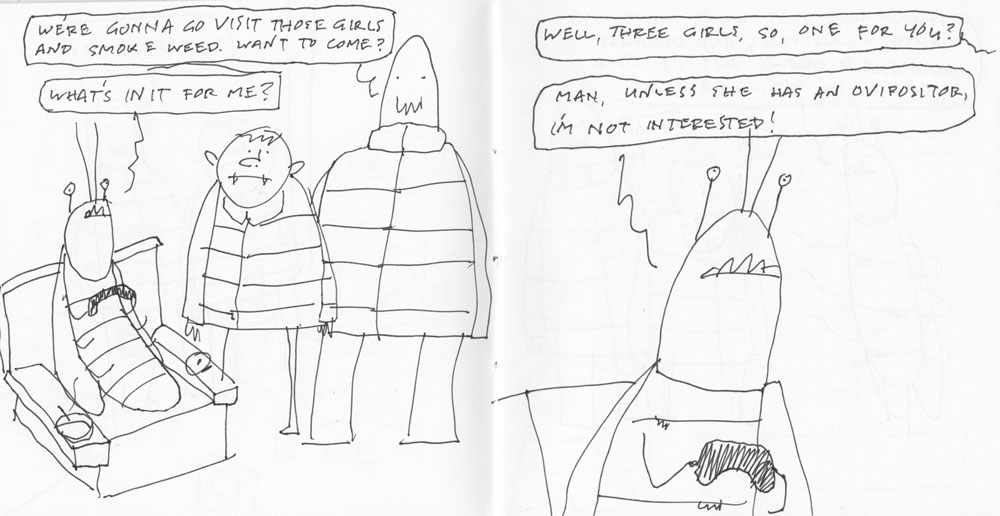 WE'RE GONNA GO VISIT THOSE GIRLS
AND SMOKE WEED. WANT TO COME?
WHAT'S IN IT FOR ME?
WELL, THREE GIRLS, SO, ONE FOR YOU?
MAN, UNLESS SHE HAS AN OVIPOSITOR,
I'M NOT INTERESTED!